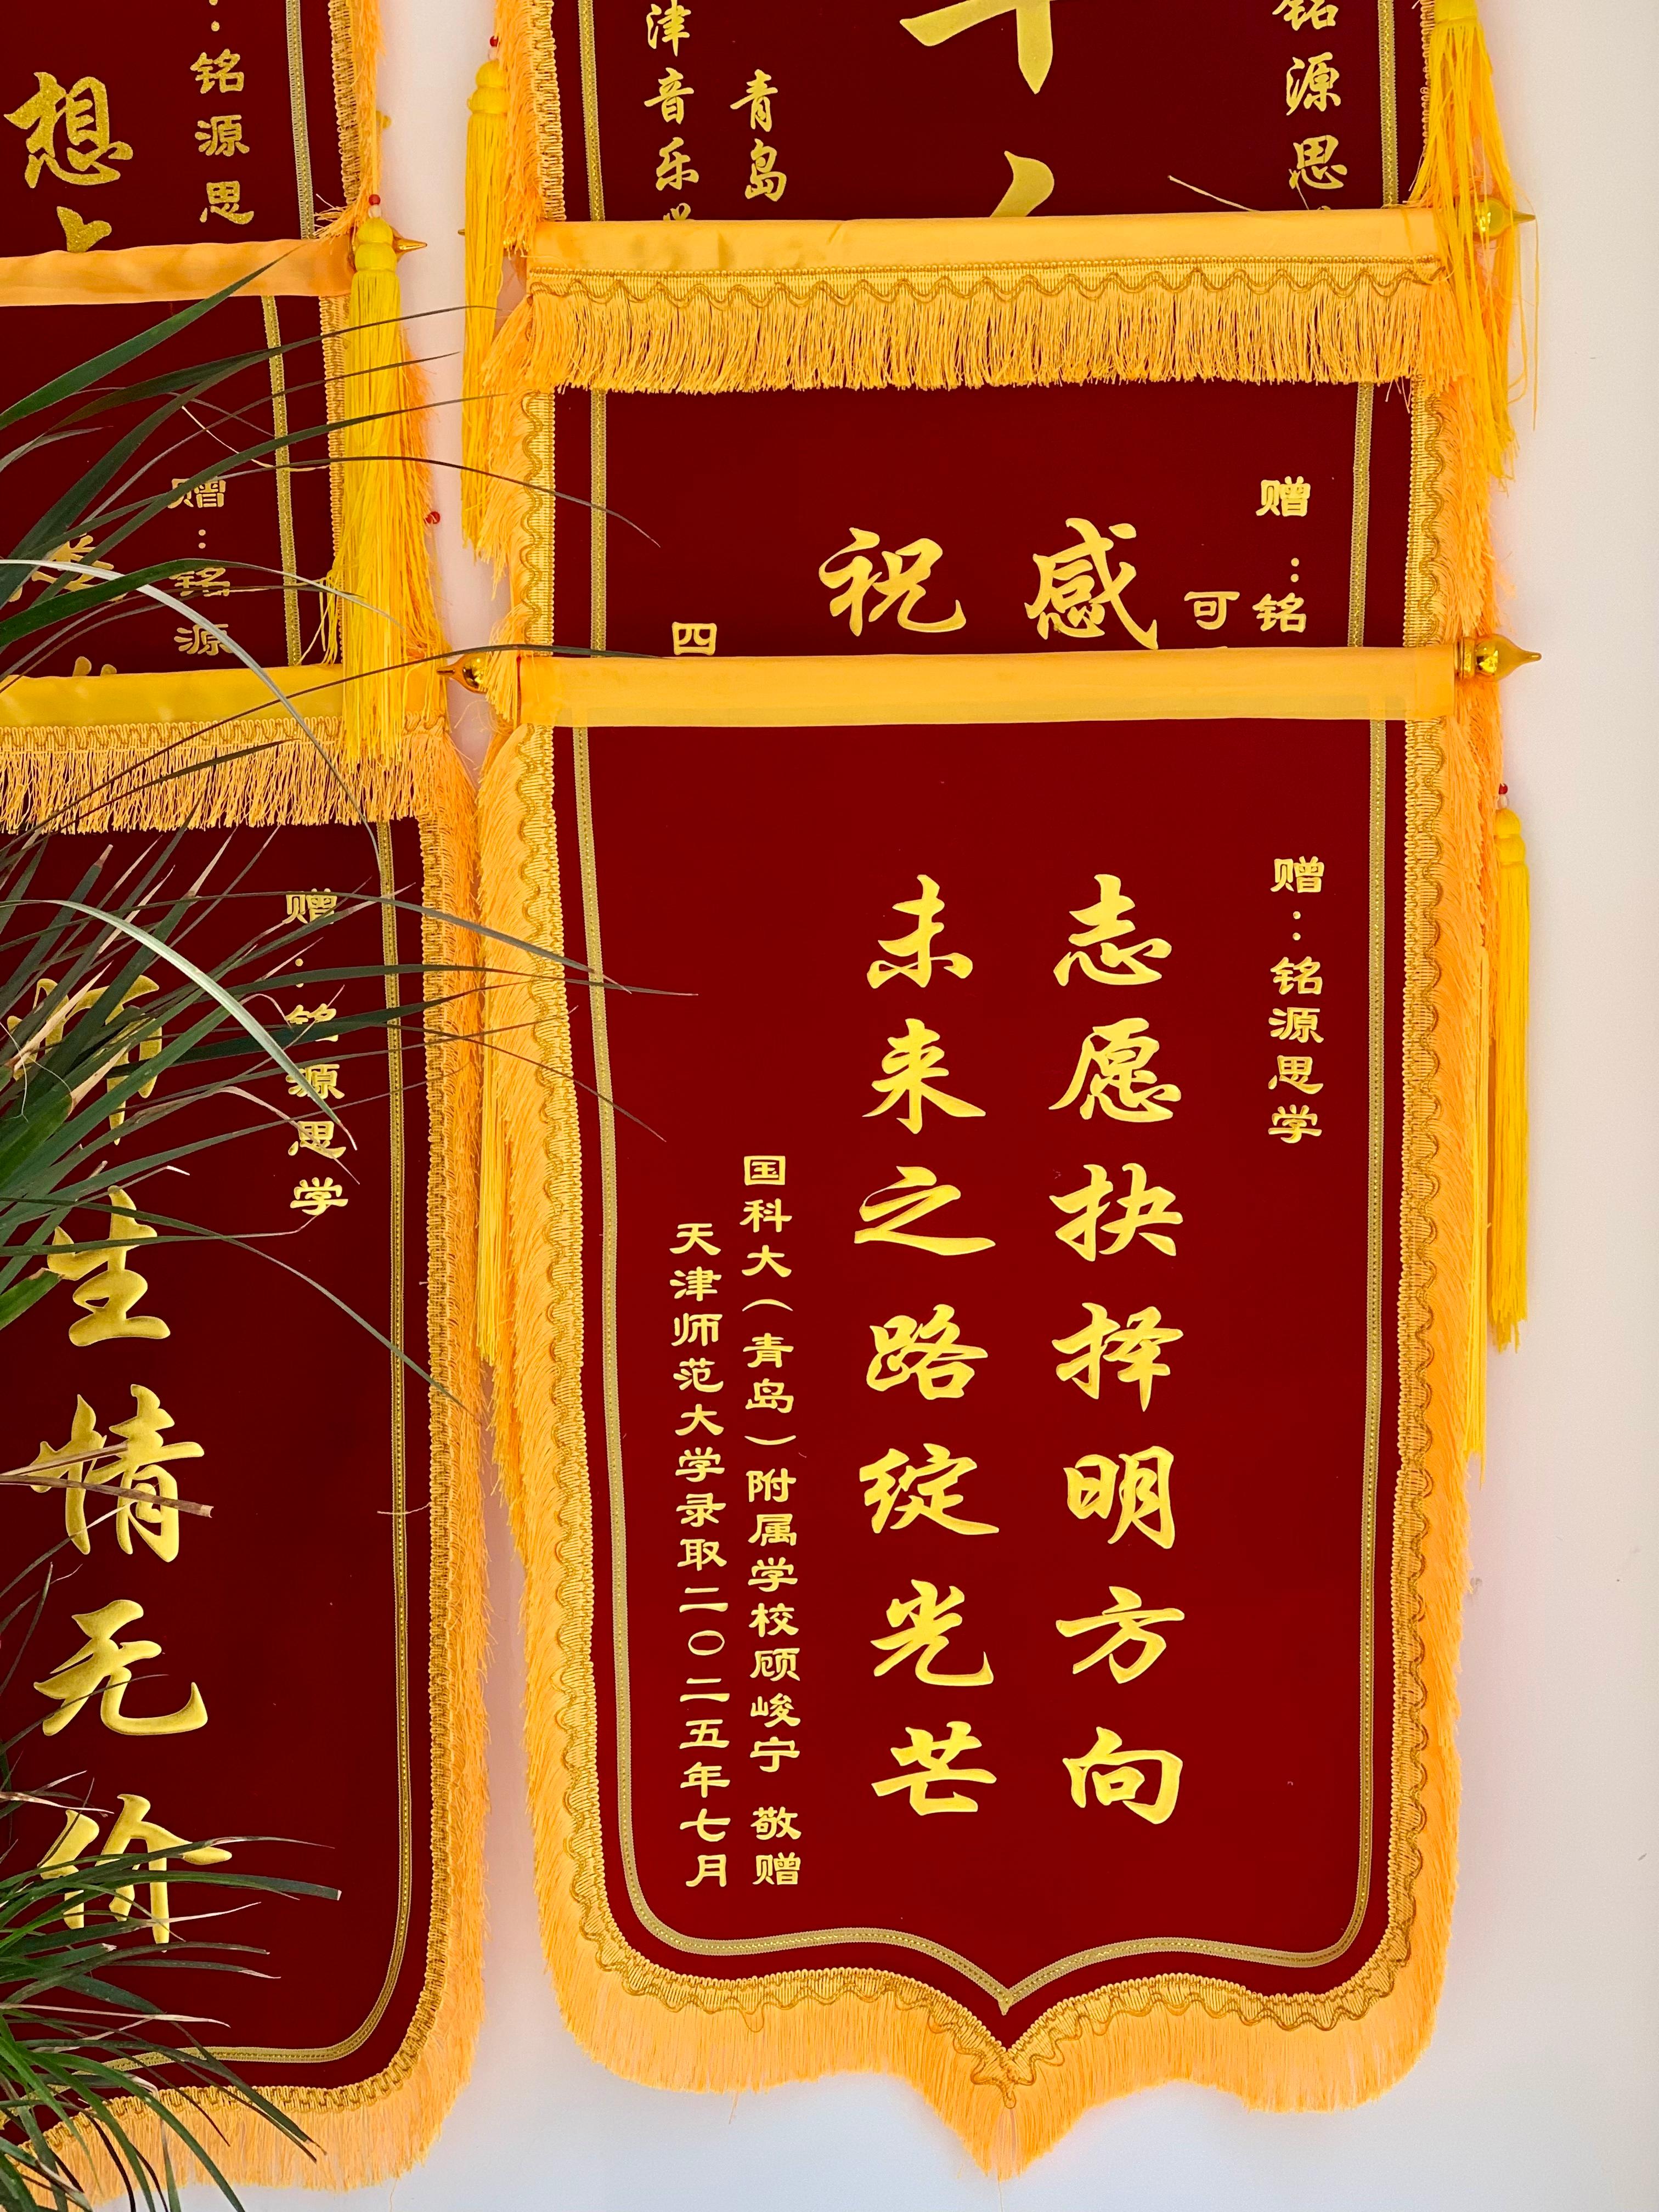 赠：铭源思学
志愿抉择明方向
未来之路绽光芒
国科大（青岛）附属学校顾峻宁 敬赠
天津师范大学录取二〇二五年七月
赠：铭
可
感
祝
四
铭源思
青岛
津音乐
铭源思
想
赠：铭源
赠：铭源思学
师生情无价